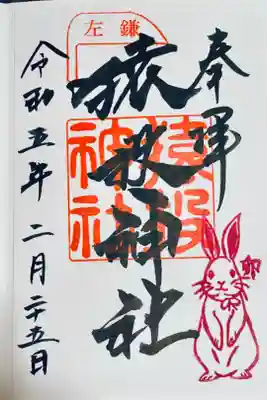 奉拝
猿投神社
令和五年 二月二十五日
左鎌
猿投神社
卯